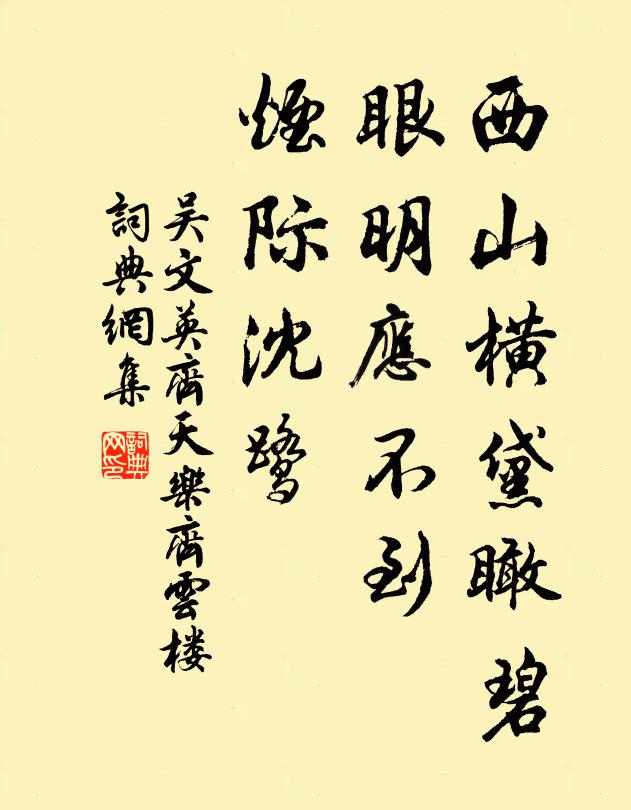 西山横黛瞰碧
眼明應不到
煙际沈鹭
吴文英齊天樂齊雲楼
詞典網集
詞典网印